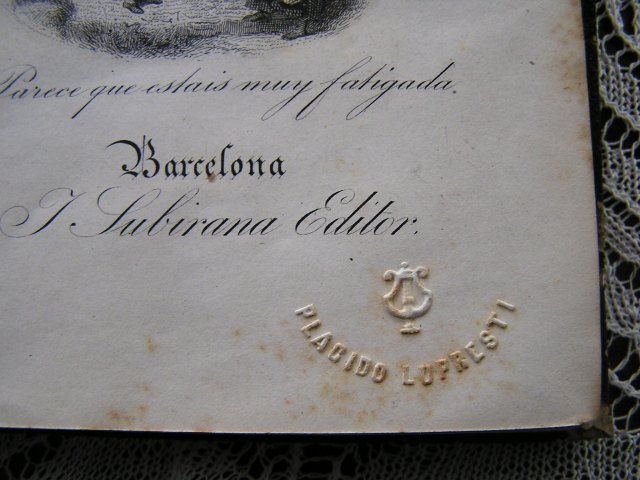 Parece que estais muy fatigada.
Barcelona
J Subirana Editor.
PLÁCIDO LUPRESTI